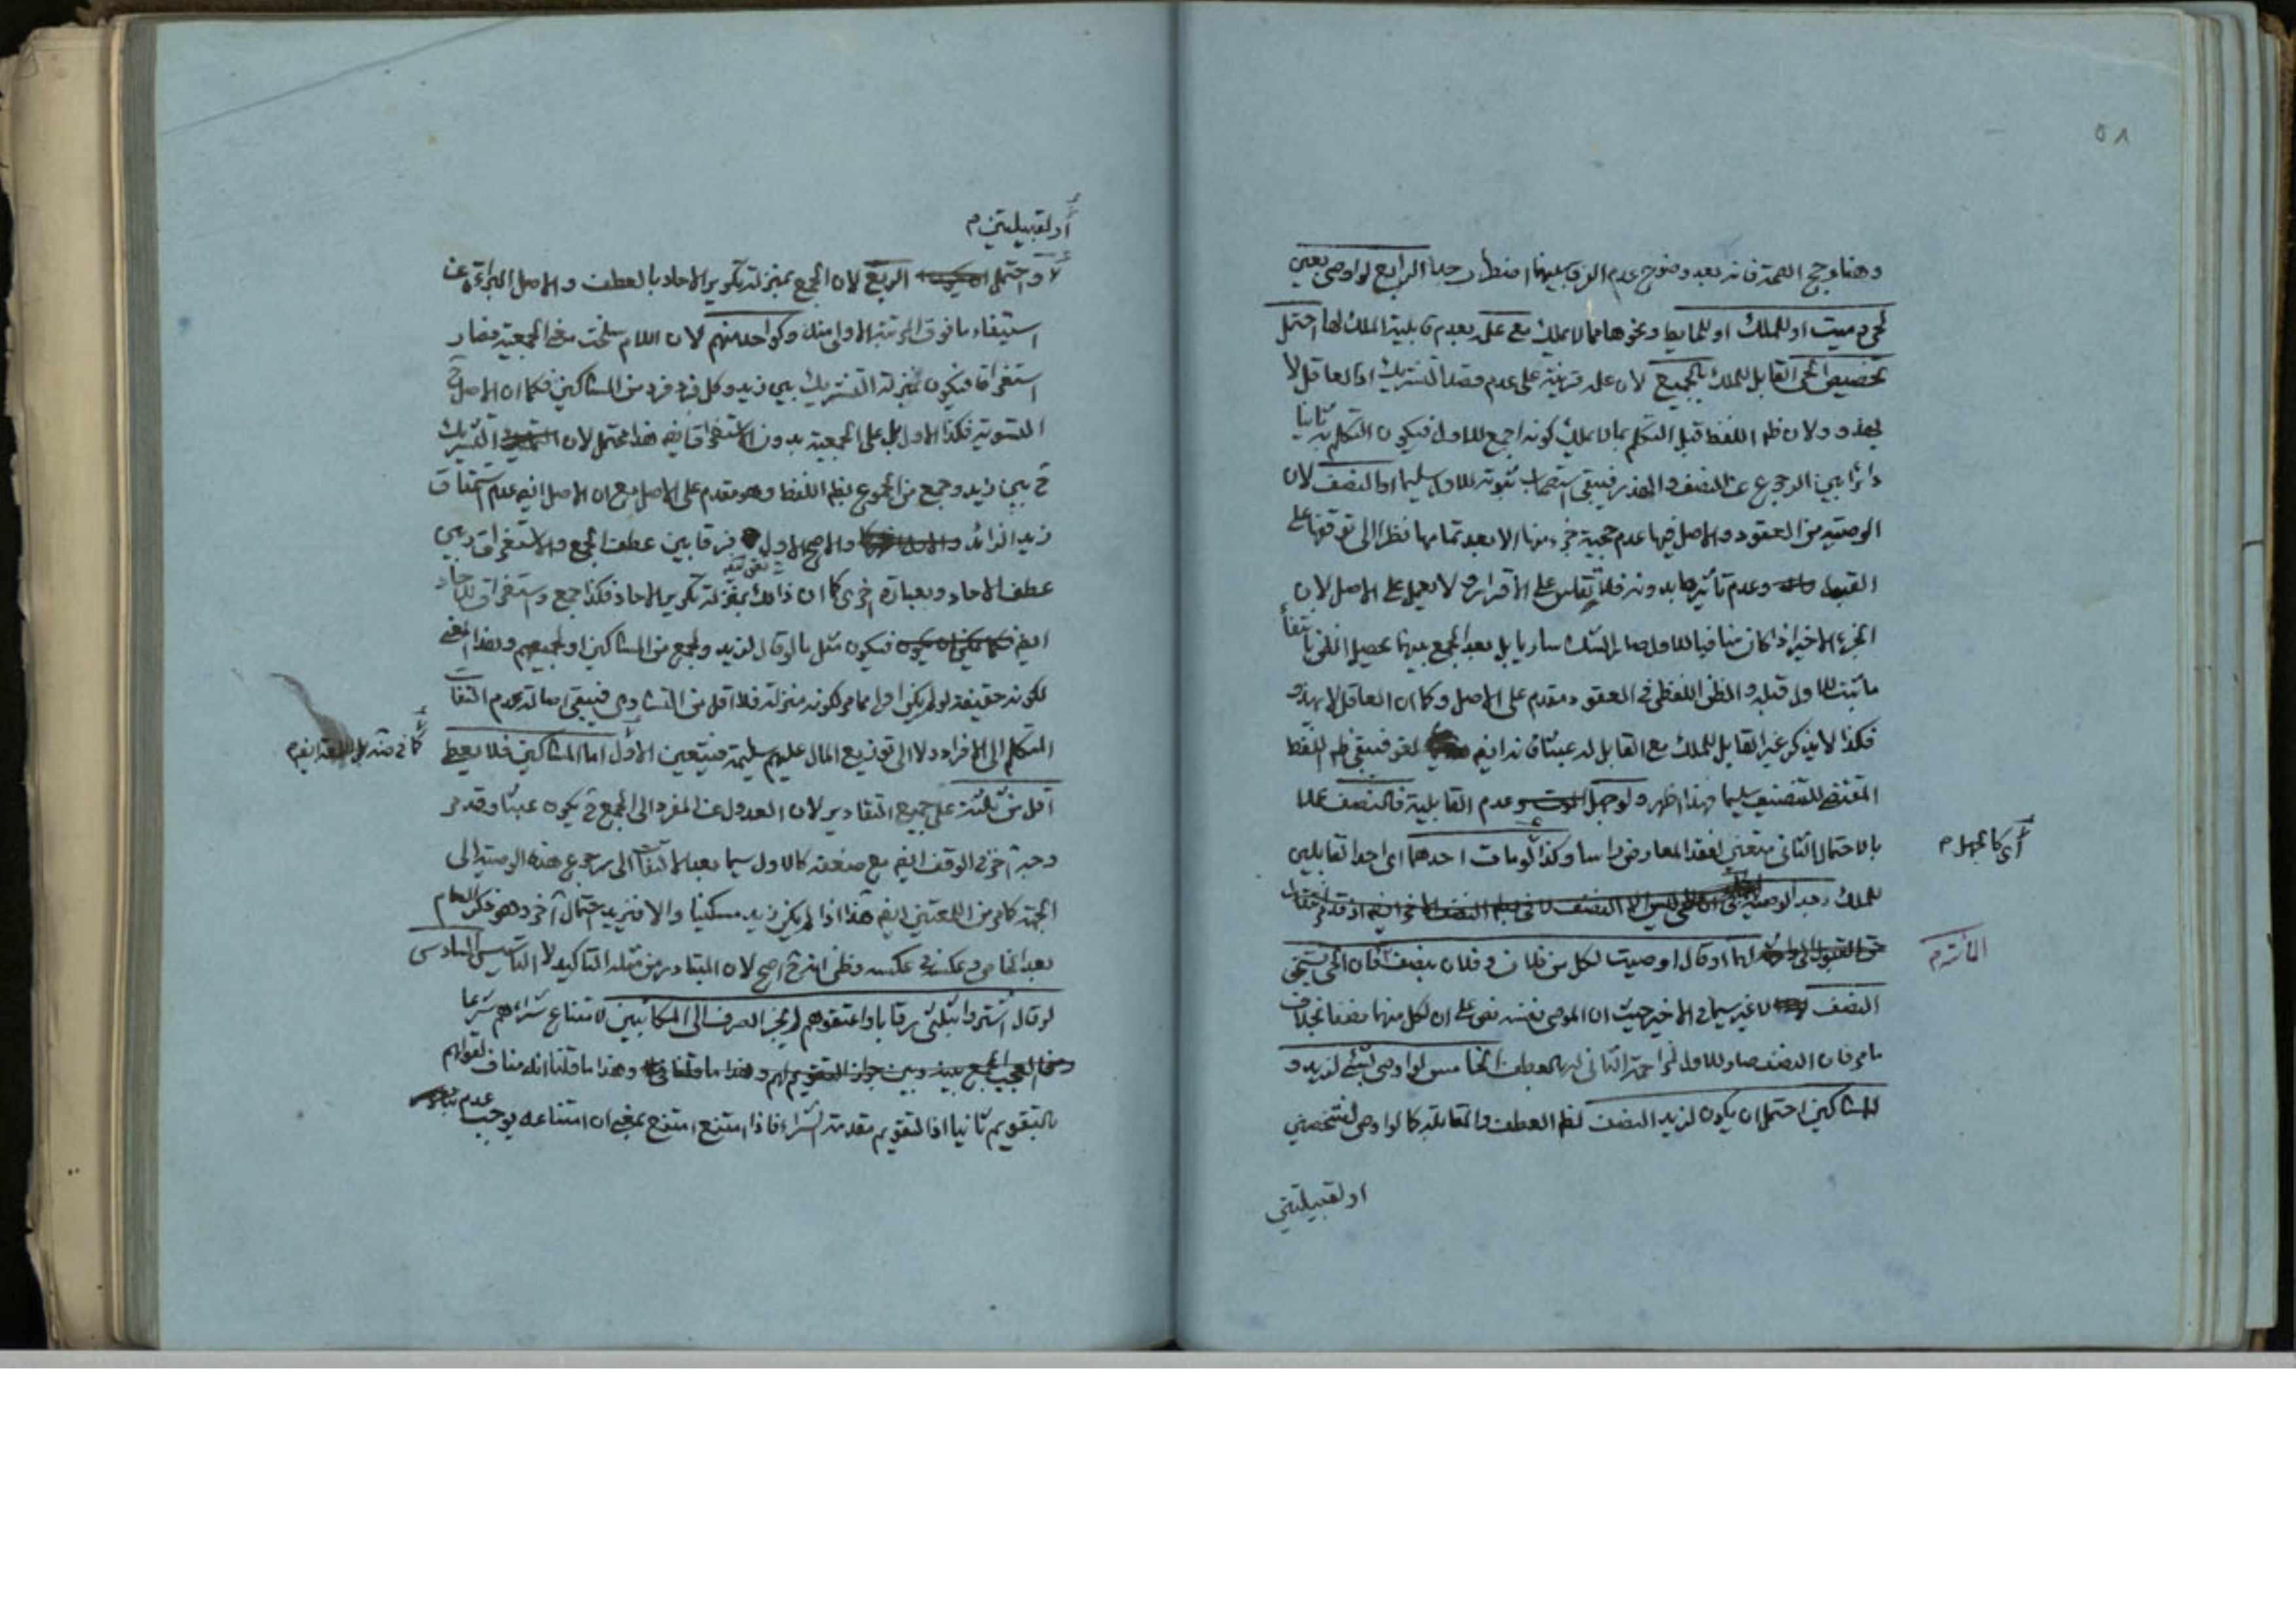 ٥٨
وهنا وجه الصحة فانه بعد وضوح عدم الفرق بينهما الرابع لو اوصى بعين
لحي وميت او للملك او للحايط ونحوها مما لا يملك مع علمه بعدم قابلية الملك لها احتمل
تخصيص الحي القابل للملك بالجميع لان علمه قرينة على عدم قصد التشريك اذ العاقل لا
يهذو ولان ظم اللفظ قبل التكلم بما لا يملك كونه اجمع للاول فيكون التكلم به ثانيا
دائرا بين الرجوع عن النصف والهذر فيبقى استصحاب ثبوته للاول سليما او النصف لان
الوصية من العقود والاصل فيها عدم حجية جزء منها الا بعد تمامها نظرا الى توقفها على
القبول وعدم تاثيرها بدونه فلا تقاس على الاقرار ولا يعمل على الاصل لان
الجزء الاخير اذا كان منافيا للاول صار الشك ساريا بل بعد الجمع بينهما يحصل الظن بانتفاء
ما ثبت للاول قبله والظن اللفظي في العقود مقدم على الاصل وكما ان العاقل لا يهذو
فكذا لا يذكر غير القابل للملك مع القابل له عبثا فانه ايضم لغو فيبقى ظم اللفظ
المقتضي للتنصيف سليما وهذا اظهر ولو جهل الموت وعدم القابلية فالنصف عملا
بالاحتمال الثاني متعين لفقد المعارض راسا وكذا لو مات احدهما اي احد القابلين
أي كالجهل م
للملك بعد الوصية
لهما او قال اوصيت لكل من فلان وفلان بنصف فان الحي يستحق
المائة م
النصف لا غير سيما في الاخير حيث ان الموصي نفسه نص على ان لكل منهما نصفا بخلاف
ما مر فان النصف صار للاول لمزاحمة الثاني له بالعطف الخامس لو اوصى بشيء لزيد و
للمساكين احتمل ان يكون لزيد النصف لظم العطف والمقابلة كما لو اوصى لشخصين
او لقبيلتين
أو لقبيلتين م
لا واحتمل الربع لان الجمع بمنزلة تكرير الاحاد بالعطف والاصل البراءة عن
استيفاء ما فوق المرتبة الاولى منه وكواحد منهم لان اللام سلخت معنى الجمعية فصار
استغراقا فيكون بمنزلة التشريك بين زيد وكل فرد فرد من المساكين فكما ان الاصل ح
التسوية فكذا الاول بل على الجمعية بدون الاستغراق ايضم هذا محتمل لان التشريك
ح بين زيد وجمع من الجموع بظم اللفظ وهو مقدم على الاصل مع ان الاصل ايضم عدم استحقاق
زيد الزائد والاصح الاول فرقا بين عطف الجمع والاستغراق وبين
عطف الاحاد وبعبارة اخرى كما ان ذلك بمنزلة تكرير الاحاد فكذا جمع واستغراق للاحاد
ايضم فيكون مثل ما لو قال لزيد ولجمع من المساكين او لجميعهم وهذا المعنى
لكونه حقيقة لو لم يكن اولى مما مر لكونه منزلة فلا اقل من التساوي فيبقى اصالة عدم التفات
المتكلم الى الافراد ولا الى توزيع المال عليهم سليمة فيتعين الاول اما المساكين فلا يعطى
اقل من ثلثة على جميع التقادير لان العدول عن المفرد الى الجمع ح يكون عبثا وقد مر
وجه اخر في الوقف ايضم مع ضعفه كالاول سيما بعد الالتفات الى رجوع هذه الوصية الى
الجهة كما مر من اللمعتين ايضم هذا اذا لم يكن زيد مسكينا والا فيزيد احتمال آخر وهو ذكر العام
بعد الخاص وعكسه في عكسه وظني انه ح اصح لان المتبادر من مثله التاكيد لا التاسيس السادس
لو قال اشتروا بثلثي رقابا واعتقوهم لم يجز الصرف الى المكاتبين لامتناع شرائهم شرعا
ومن العجيب الجمع بينه وبين جواز التقويم لهم وهذا ما قلنا انه مناف لقولهم
بالتقويم ثانيا اذ التقويم مقدمة الشراء فاذا امتنع امتنع بمعنى ان امتناعه يوجب عدم